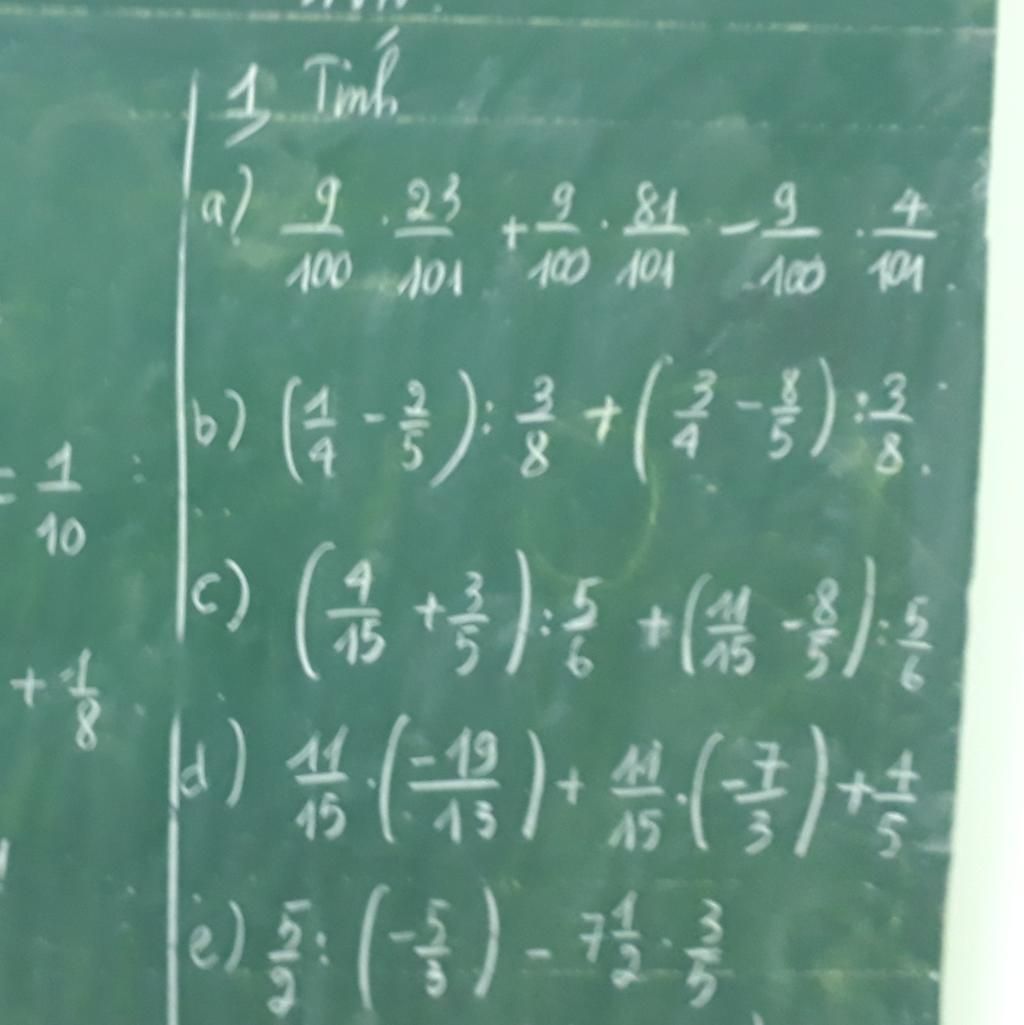 1, Tính
a) 9/100 . 23/101 + 9/100 . 81/101 - 9/100 . 4/101.
b) (1/4 - 2/5) : 3/8 + (3/4 - 8/5) : 3/8.
= 1/10
c) (4/15 + 3/5) : 5/6 + (11/15 - 8/5) : 5/6
+ 1/8
d) 11/15 . (-19/13) + 11/15 . (-7/3) + 4/5
e) 5/2 : (-5/3) - 7 1/2 . 3/5